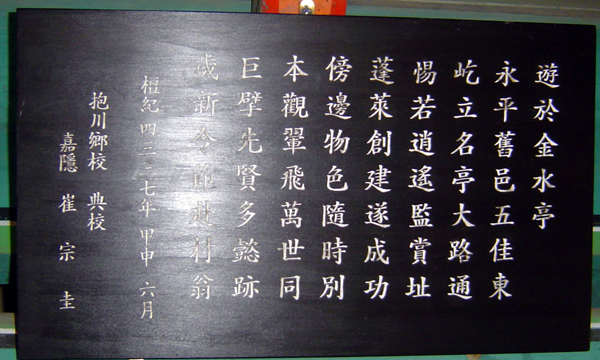 遊於金水亭
永平舊邑五佳東
屹立名亭大路通
惕若逍遙監賞址
蓬萊創建遂成功
傍邊物色隨時別
本觀翬飛萬世同
巨擘先賢多懿跡
新今 村翁
檀紀 四三三七年 甲申 六月
抱川鄕校 典校
嘉隱 崔宗圭